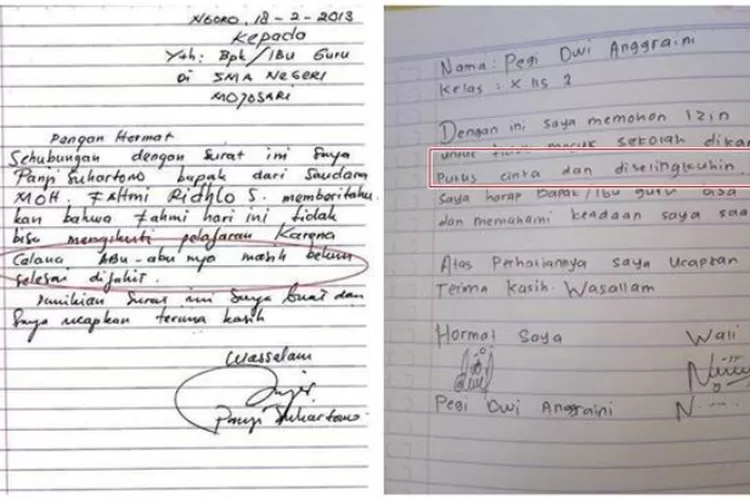 NGORO, 18 - 2 - 2013
Kepada
Yth: Bpk/IBu Guru
Di SMA NEGERI
MOJOSARI
Dengan Hormat
Sehubungan dengan surat ini Saya
Panji Suhartono bapak dari Saudara
MOH. FAHmi Ridhlo S. memberitahu.
kan bahwa Fahmi hari ini tidak
bisa mengikuti pelajaran Karena
Celana ABu-abu nya masih belum
selesai dijahit.
Demikian Surat ini Saya buat dan
Saya ucapkan terima kasih
Wassalam
Panji Suhartono
Nama : Pegi Dwi Anggraini
Kelas : X IIS 2
Dengan ini saya memohon Izin
untuk tidak masuk sekolah dikar
Putus cinta dan diselingkuhin..
Saya harap Bapak/Ibu guru bisa
dan memahami keadaan saya saa
Atas Perhatiannya saya Ucapkan
Terima kasih. Wasallam
Hormat Saya Wali
Pegi Dwi Anggraini N